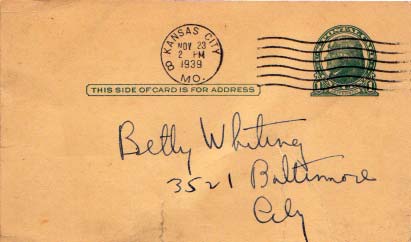 KANSAS CITY
NOV 23
2 PM
1939
8
MO.
THIS SIDE OF CARD IS FOR ADDRESS
Betty Whiting
3521 Baltimore
City